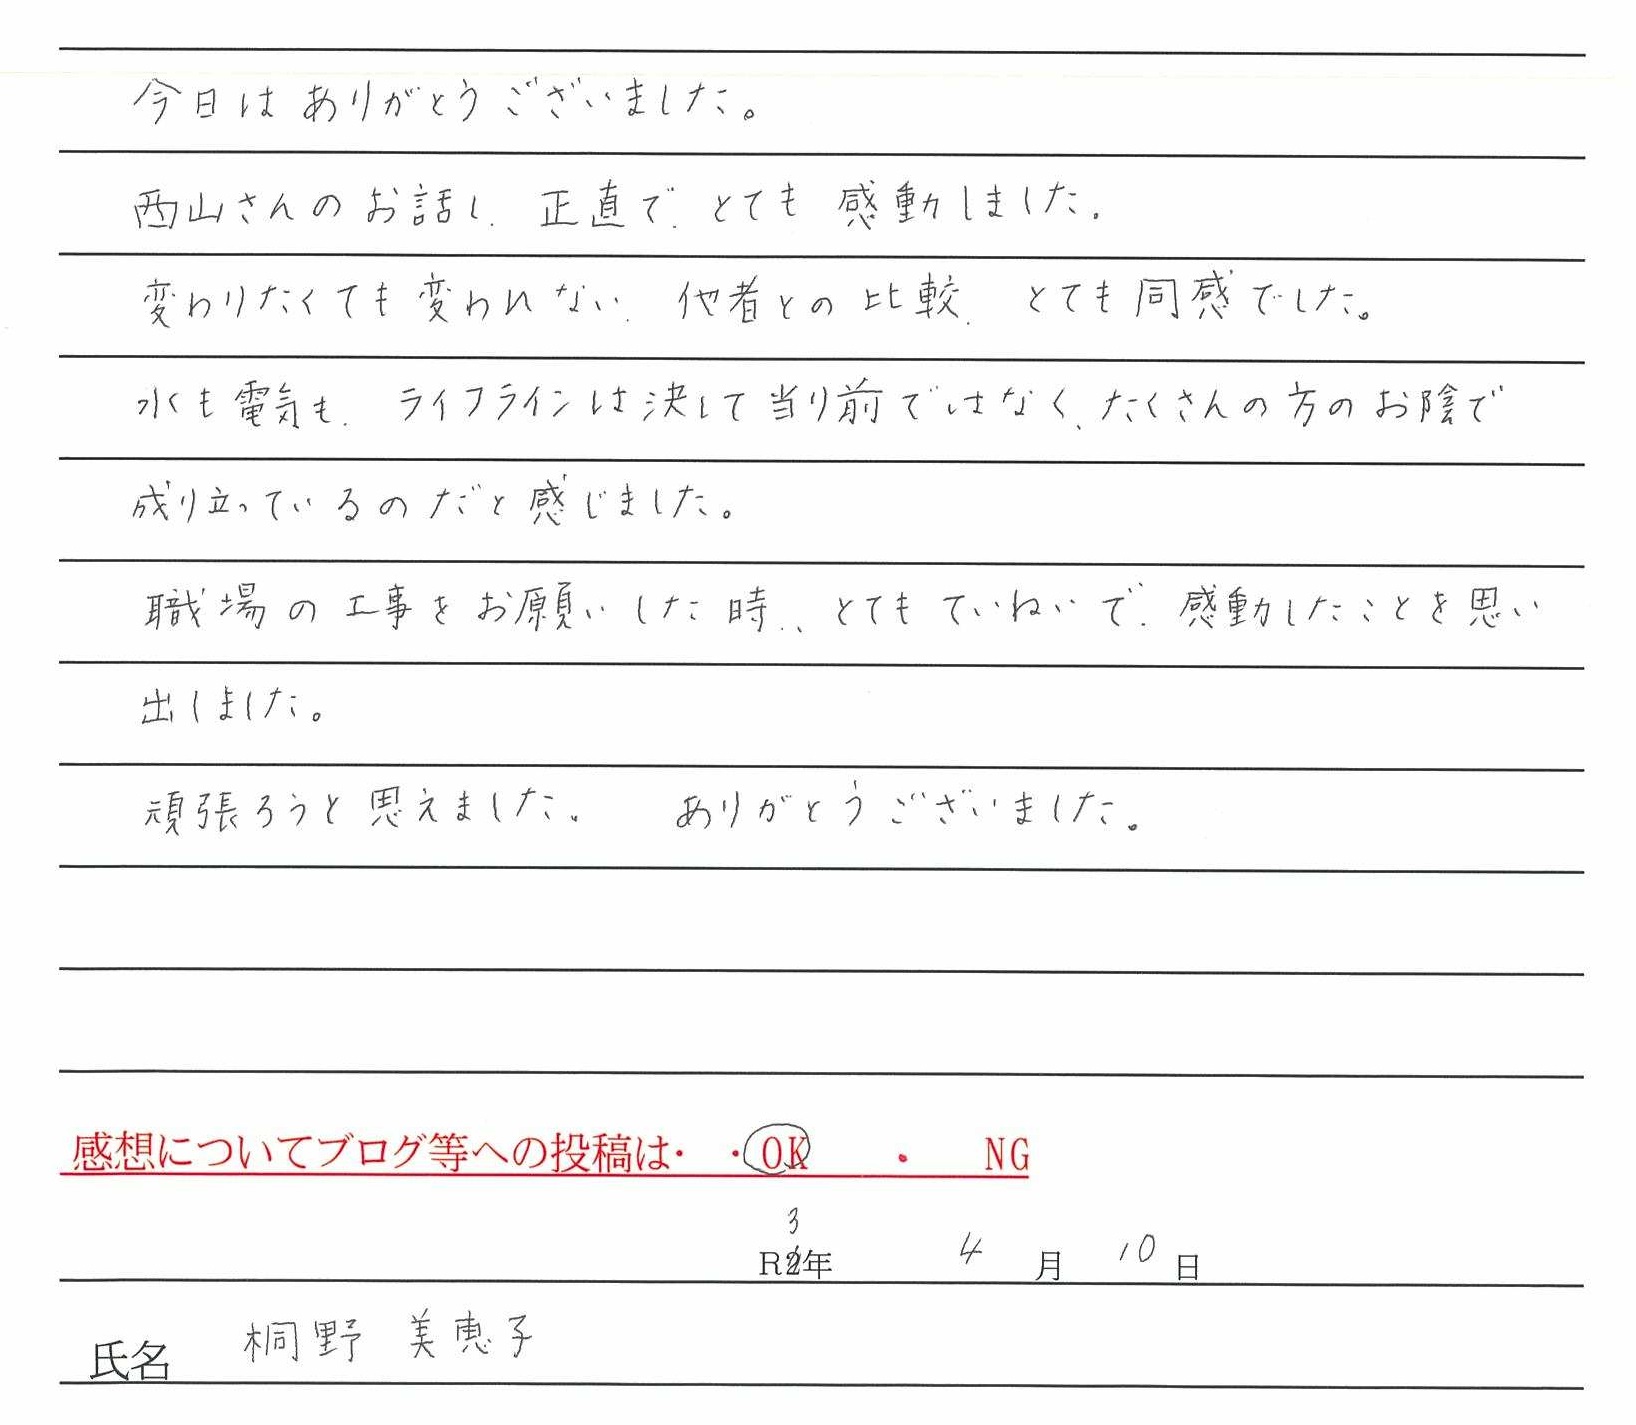 今日はありがとうございました。
西山さんのお話し、正直で、とても感動しました。
変わりたくても変われない、他者との比較、とても同感でした。
水も電気も、ライフラインは決して当り前ではなく、たくさんの方のお陰で
成り立っているのだと感じました。
職場の工事をお願いした時、、とてもていねいで、感動したことを思い
出しました。
頑張ろうと思えました。 ありがとうございました。
感想についてブログ等への投稿は・・OK ・ NG
3
R2年 4月 10日
氏名 桐野 美恵子